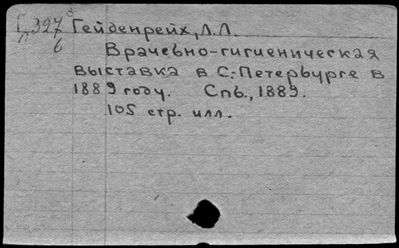 Г 327 Гейденрейх, Л.Л.
Л 6
Врачебно-гигиеническая
выставка в С.-Петербурге в
1889 году. Спб., 1889.
105 стр. илл.